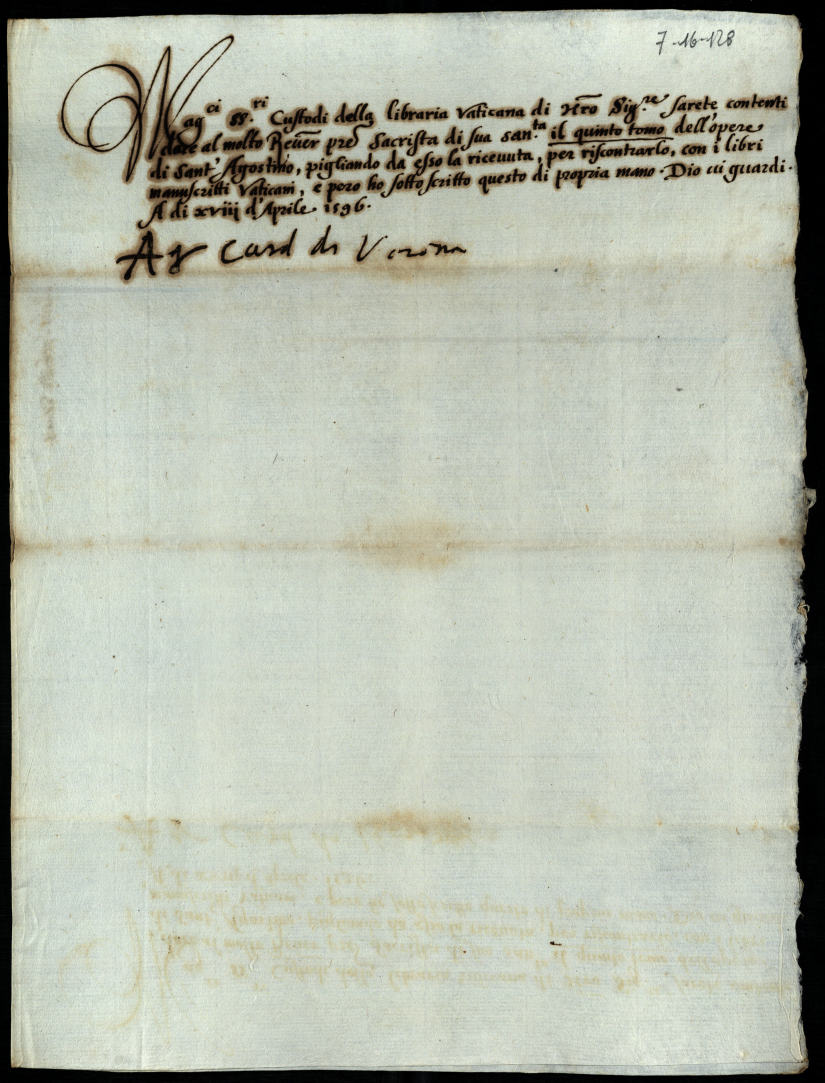 7-16-128
Mag.ci SS.ri Custodi della libraria Vaticana di Nro Sig.re sarete contenti
dare al molto Reuer pre Sacrista di sua san.ta il quinto tomo dell'opere
di Sant' Agostino, pigliando da esso la riceuuta, per riscontrarlo, con i libri
manuscritti Vaticani, e pero ho sottoscritto questo di propria mano. Dio ui guardi.
A di xviij d'Aprile 1596.
Ag Card di Verona